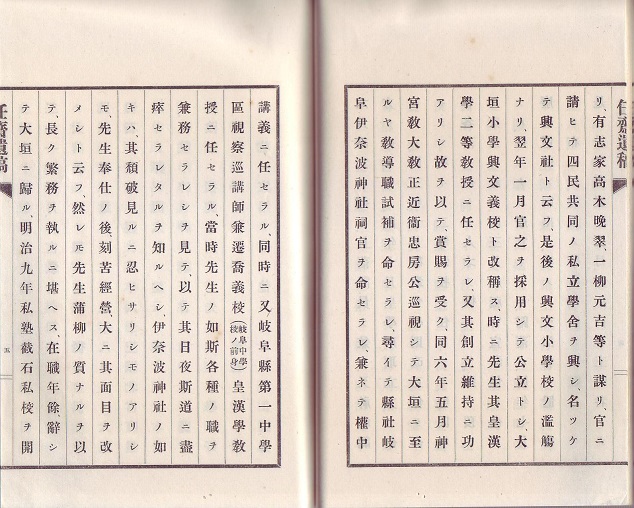 リ、有志家高木晚翠、一柳元吉等ト謀リ、官ニ
請ヒテ四民共同ノ私立學舍ヲ興シ、名ツケ
テ興文社ト云フ、是後ノ興文小學校ノ濫觴
ナリ、翌年一月官之ヲ採用シテ公立トシ、大
垣小學興文義校ト改稱ス、時ニ先生其皇漢
學二等敎授ニ任セラレ、又其創立維持ニ功
アリシ故ヲ以テ、賞賜ヲ受ク、同六年五月神
宮敎大敎正近衞忠房公巡視シテ大垣ニ至
ルヤ敎導職試補ヲ命セラレ、尋イテ縣社岐
阜伊奈波神社祠官ヲ命セラレ、兼ネテ權中
講義ニ任セラル、同時ニ又岐阜縣第一中學
區視察巡講師兼遷喬義校(岐阜中學校ノ前身)皇漢學敎
授ニ任セラル、當時先生ノ如斯各種ノ職ヲ
兼務セラレシヲ見テ、以テ其日夜斯道ニ盡
瘁セラレタルヲ知ルヘシ、伊奈波神社ノ如
キハ、其頹破見ルニ忍ヒサリシモノアリシ
モ、先生奉仕ノ後、刻苦經營、大ニ其面目ヲ改
メシト云フ、然レモ先生蒲柳ノ質ナルヲ以
テ、長ク繁務ヲ執ルニ堪ヘス、在職年餘、辭シ
テ大垣ニ歸ル、明治九年私塾截石私校ヲ開
任齋遺稿
五